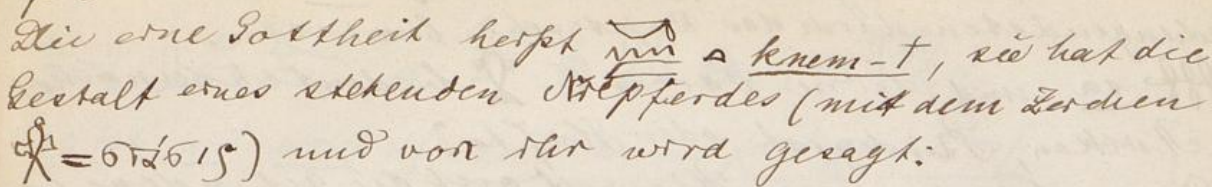 Die eine Gottheit heißt knem-t, sie hat die
Gestalt eines stehenden Nilpferdes (mit dem Zeichen
=) und von ihr wird gesagt: